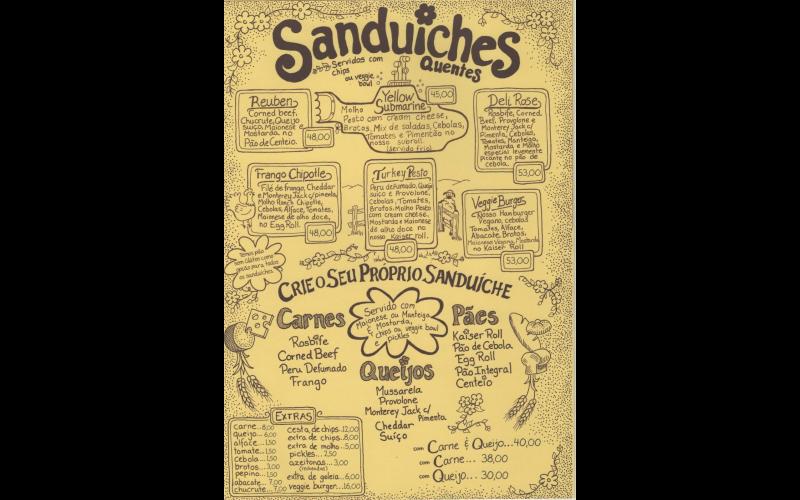 Sanduiches
Quentes
Servidos com
chips
ou veggie
bowl
Reuben
Corned beef,
Chucrute, Queijo
Suiço, Maionese e
Mostarda no
Pão de Centeio.
48,00
Yellow
Submarine
45,00
Molho
Pesto com cream cheese,
Brotos, Mix de saladas, Cebolas,
Tomates e Pimentão no
nosso subroll.
(servido frio)
Deli Rose
Rosbife, Corned
Beef, Provolone e
Monterey Jack c/
Pimenta, Cebolas,
Tomates, Manteiga,
Mostarda e Molho
especial levemente
picante no pão de
cebola.
53,00
Frango Chipotle
Filé de frango, Cheddar
e Monterey Jack c/pimenta,
Molho Ranch Chipotle,
Cebolas, Alface, Tomates,
Maionese de alho doce,
no Egg Roll.
48,00
Turkey Pesto
Peru defumado, Queijo
suiço e Provolone,
Cebolas, Tomates,
Brotos, Molho Pesto
com cream cheese,
Mostarda e Maionese
de alho doce no
nosso Kaiser roll.
48,00
Veggie Burger
Nosso Hamburger
Vegano, cebolas
Tomates, Alface,
Abacate, Brotos,
Maionese Vegana, Mostarda
no Kaiser Roll
53,00
Temos pão
sem Glúten como
opção para todos
os sanduiches
CRIE O SEU PRÓPRIO SANDUÍCHE
Servido com
Maionese ou Manteiga
& Mostarda,
chips ou veggie bowl
e pickles
Carnes
Rosbife
Corned Beef
Peru Defumado
Frango
Queijos
Mussarela
Provolone
Monterey Jack c/
Pimenta
Cheddar
Suíço
Pães
Kaiser Roll
Pão de Cebola
Egg Roll
Pão Integral
Centeio
EXTRAS
carne...8,00
queijo...6,00
alface...1,50
tomate...1,50
cebola...1,50
brotos...3,00
pepino...1,50
abacate...7,00
chucrute...7,00
cesta de chips...12,00
extra de chips...8,00
extra de molho...5,00
pickles...2,50
azeitonas...3,00
extra de geleia...6,00
veggie burger...16,00
com Carne & Queijo...40,00
com Carne... 38,00
com Queijo... 30,00